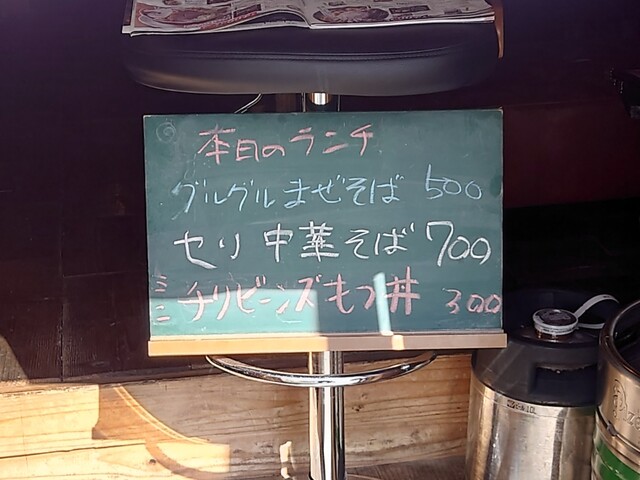 本日のランチ
グルグルまぜそば 500
セリ中華そば 700
ミニチリビーンズもつ丼 300